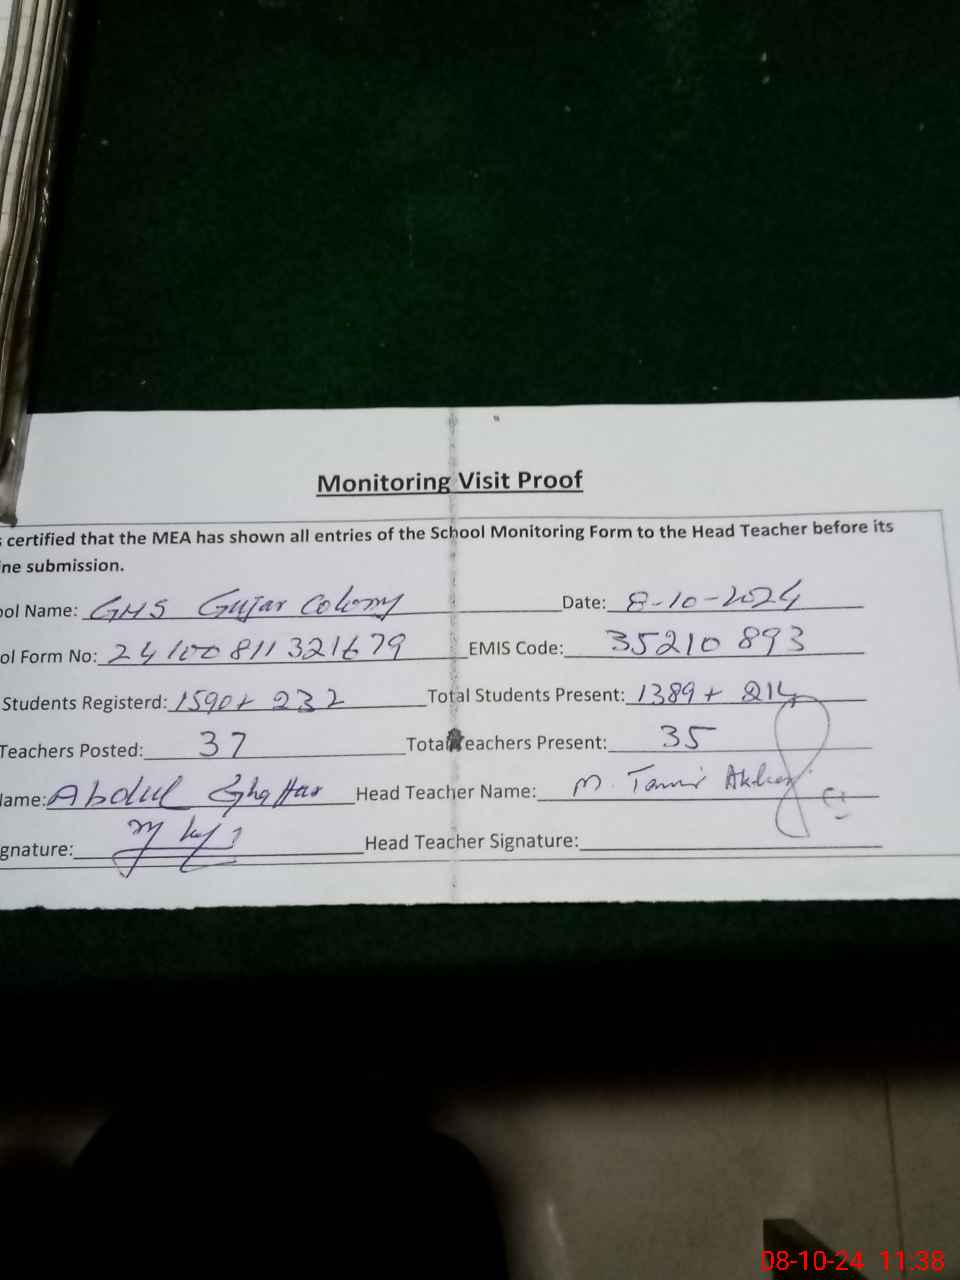 Monitoring Visit Proof
certified that the MEA has shown all entries of the School Monitoring Form to the Head Teacher before its
ne submission.
ool Name: GHS Gujar Colony Date: 8-10-2024
ol Form No: 24100811321679 EMIS Code: 35210893
Students Registerd: 1590+ 232 Total Students Present: 1389+ 214
Teachers Posted: 37 Total Teachers Present: 35
ame: Abdul Ghaffar Head Teacher Name: M. Tamir Akhter
gnature: Head Teacher Signature:
08-10-24 11:38